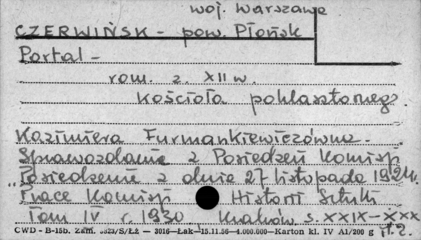 woj. Warszawa
CZERWIŃSK - pow. Płońsk
Portal -
rom. z. XII w.
kościoła poklasztornego.
Kazimiera Furmankiewiczówna -
Sprawozdanie z Posiedzeń Komisji
"Posiedzenie z dnia 27 listopada 1924r.
Prace Komisji Historii Sztuki
Tom IV r. 1930. Kraków s. XXIX-XXX
CWD - B-15b. Zam. S/Łż - 3016-Łak-15.11.56-4.000.000-Karton kl. IV A1/200 g